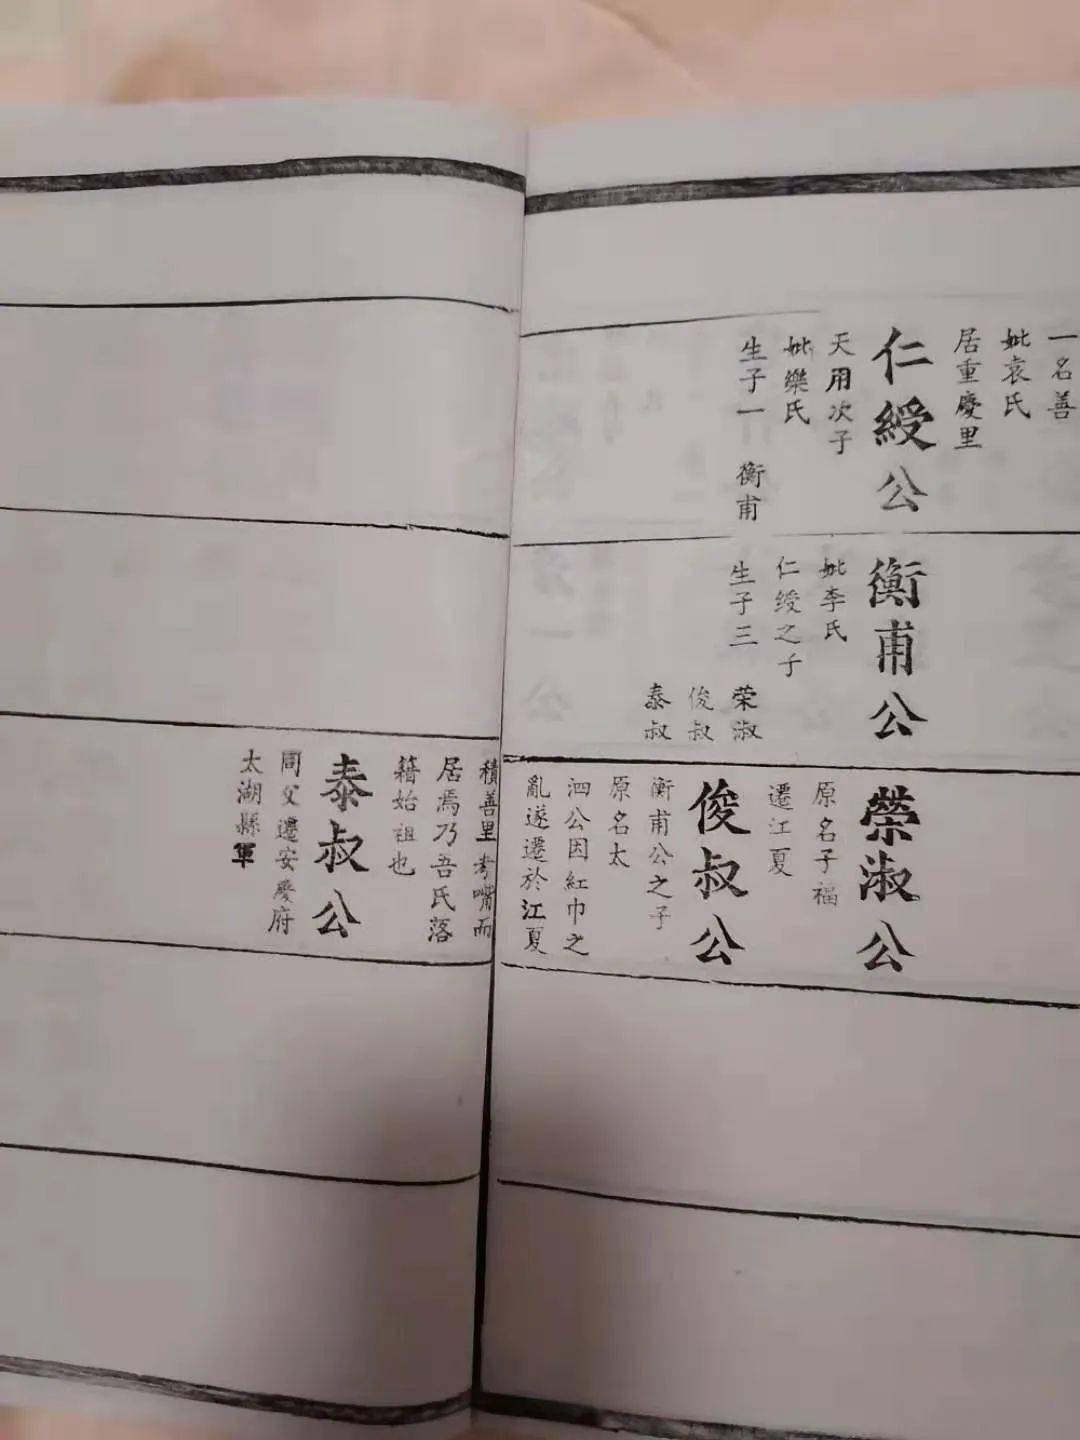 一名善
妣袁氏
居重慶里
仁綬公
天用次子
妣樂氏
生子一 衡甫
衡甫公
妣李氏
仁綬之子
生子三
荣淑
俊叔
泰叔
榮淑公
原名子福
遷江夏
俊叔公
衡甫公之子
原名太
泗公因紅巾之
亂遂遷於江夏
積善里考嘴而
居焉乃吾氏落
籍始祖也
泰叔公
同父遷安慶府
太湖縣軍